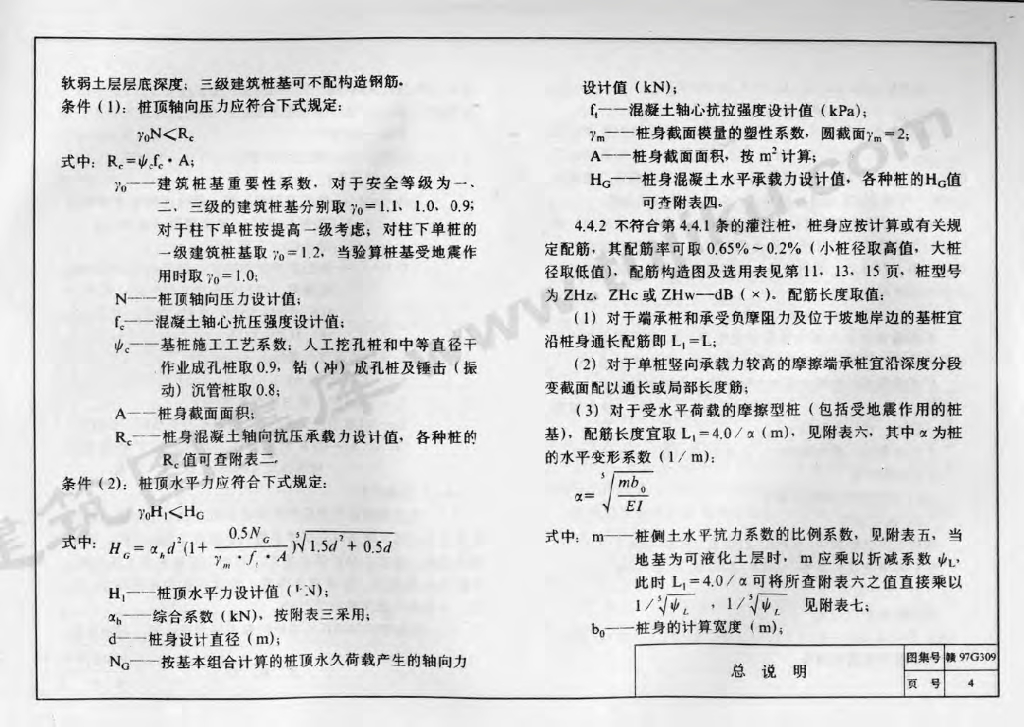 软弱土层层底深度；三级建筑桩基可不配构造钢筋。
条件（1）：桩顶轴向压力应符合下式规定：
γ₀N＜R_c
式中：R_c=ψ_c f_c·A；
γ₀——建筑桩基重要性系数，对于安全等级为一、
二、三级的建筑桩基分别取γ₀=1.1、1.0、0.9；
对于柱下单桩按提高一级考虑；对柱下单桩的
一级建筑桩基取γ₀=1.2，当验算桩基受地震作
用时取γ₀=1.0；
N——桩顶轴向压力设计值；
f_c——混凝土轴心抗压强度设计值；
ψ_c——基桩施工工艺系数；人工挖孔桩和中等直径干
作业成孔桩取0.9，钻（冲）成孔桩及锤击（振
动）沉管桩取0.8；
A——桩身截面面积；
R_c——桩身混凝土轴向抗压承载力设计值，各种桩的
R_c值可查附表二。
条件（2）：桩顶水平力应符合下式规定：
γ₀H₁＜H_G
式中：H_G = α_h d²(1+ 0.5N_G / γ_m·f_t·A) ⁵√1.5d²+0.5d
H₁——桩顶水平力设计值（kN）；
α_h——综合系数（kN），按附表三采用；
d——桩身设计直径（m）；
N_G——按基本组合计算的桩顶永久荷载产生的轴向力
设计值（kN）；
f_t——混凝土轴心抗拉强度设计值（kPa）；
γ_m——桩身截面模量的塑性系数，圆截面γ_m=2；
A——桩身截面面积，按m²计算；
H_G——桩身混凝土水平承载力设计值，各种桩的H_G值
可查附表四。
4.4.2 不符合第4.4.1条的灌注桩，桩身应按计算或有关规
定配筋，其配筋率可取0.65%～0.2%（小桩径取高值，大桩
径取低值），配筋构造图及选用表见第11，13，15页，桩型号
为ZHz、ZHc或ZHw—dB（×）。配筋长度取值：
（1）对于端承桩和承受负摩阻力及位于坡地岸边的基桩宜
沿桩身通长配筋即L₁=L；
（2）对于单桩竖向承载力较高的摩擦端承桩宜沿深度分段
变截面配以通长或局部长度筋；
（3）对于受水平荷载的摩擦型桩（包括受地震作用的桩
基），配筋长度宜取L₁=4.0/α（m），见附表六，其中α为桩
的水平变形系数（1/m）：
α= ⁵√mb₀/EI
式中：m——桩侧土水平抗力系数的比例系数，见附表五，当
地基为可液化土层时，m应乘以折减系数ψ_L，
此时L₁=4.0/α可将所查附表六之值直接乘以
1/⁵√ψ_L，1/⁵√ψ_L 见附表七；
b₀——桩身的计算宽度（m）；
总 说 明
图集号 赣97G309
页 号 4